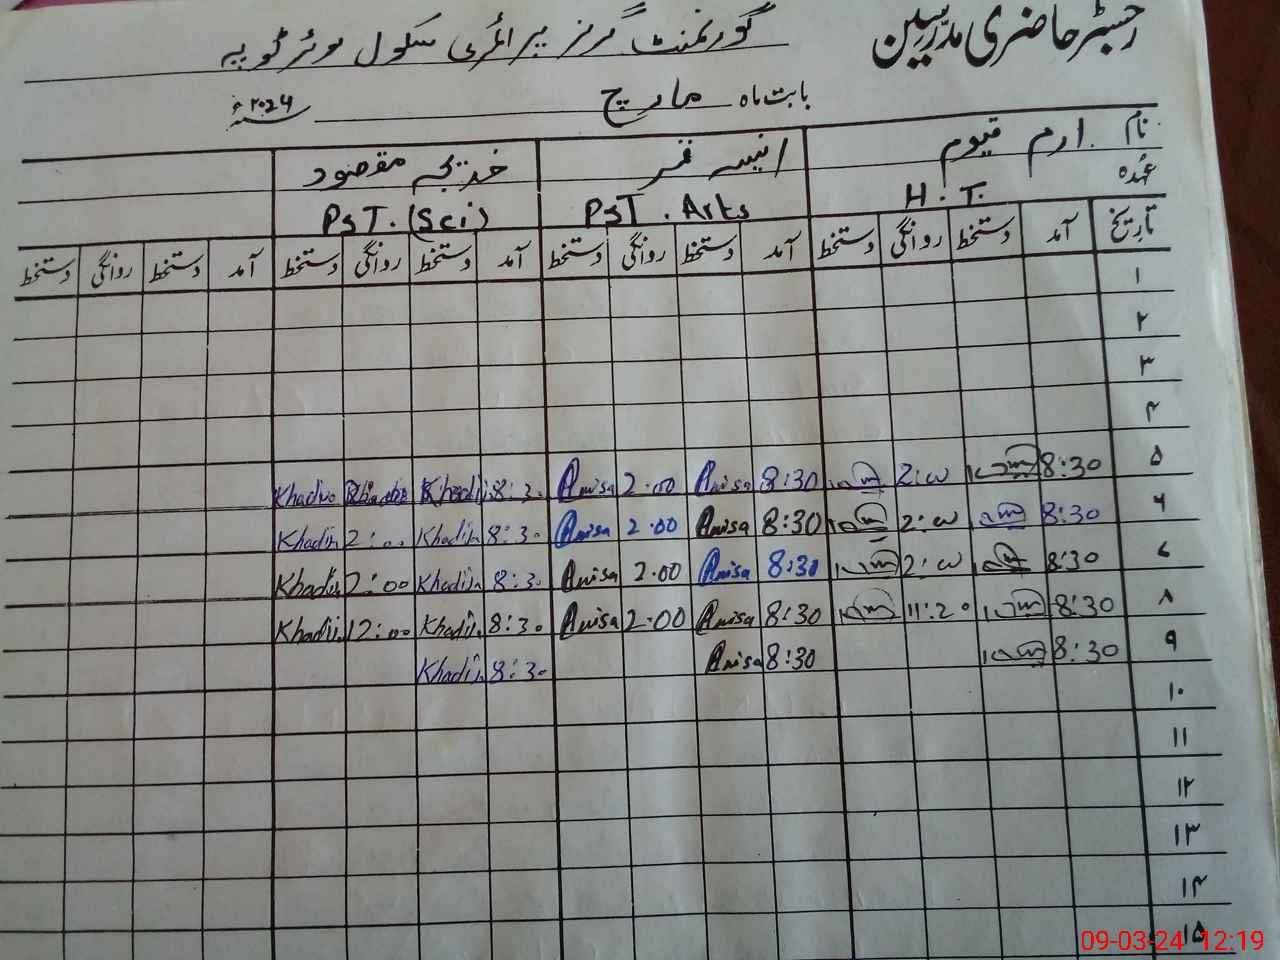 رجسٹر حاضری مدرسین
گورنمنٹ گرلز پرائمری سکول
بابت ماہ مارچ ۲۰۲۴ء
نام ارم قیوم انیسہ قمر خدیجہ مقصود
عہدہ H.T. PST. Arts PST. (Sci)
تاریخ آمد دستخط روانگی دستخط آمد دستخط روانگی دستخط آمد دستخط روانگی دستخط آمد دستخط روانگی دستخط
۱
۲
۳
۴
۵ 8:30 2:00 8:30 Anisa 2.00 Anisa 8:30 Khadija
۶ 8:30 2:00 8:30 Anisa 2.00 Anisa 8:30 Khadija 2:00 Khadija
۷ 8:30 2:00 8:30 Anisa 2.00 Anisa 8:30 Khadija 2:00 Khadija
۸ 8:30 11:20 8:30 Anisa 2.00 Anisa 8:30 Khadija 12:00 Khadija
۹ 8:30 8:30 Anisa 8:30 Khadija
۱۰
۱۱
۱۲
۱۳
۱۴
۱۵
09-03-24 12:19